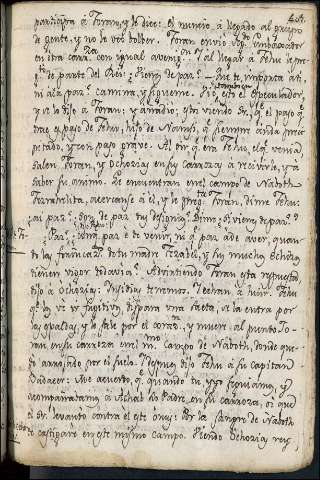 participa a Joran, y le dice: El nuncio a llegado al grupo
de gente, y no le veo bolber. Joran envio segundo embaxador
en otra carroza con igual aviso. Al llegar a Jehu le pre
de parte del Rei: Vienes de paz? Que te importa a ti
ni a la paz? camina, y sigueme. Vio esto el Especulador,
y se lo dijo a Joran: y añadio; estoi viendo que el paso que
trae, es paso de Jehu, hijo de Namsi, que siempre anda preci
pitado, y con paso grave. Al oir que era Jehu, el que venia,
salen Joran, y Ochozias en su carroza a recivirle, y a
saber su animo. Le encuentran en el campo de Naboth
Jezrahelita, acercanse a él, y le preg. Joran, dime Jehu:
ai paz? son de paz tus designios? Dime, si vienes de paz?
Paz? que paz e de venir, ni que paz a de aver, quan
do las fornicaz. de tu madre Jezabel, y sus muchos hechizos
tienen vigor todavia? Advirtiendo Joran esta respuesta,
dijo a Ochozias: Insidias tenemos. y echan a huir. Jehu
que los ve ir fugitivos, dispara una saeta, que la entra por
las espaldas, y le sale por el corazon, y muere al punto Jo
ran, en su carroza en el mismo Campo de Naboth, donde que
do arrojado por el suelo. Despues dijo Jehu a su Capitan
Badacer: Me acuerdo, que quando tu y yo seguiamos, y
acompañabamos a Achab su Padre en su carroza, oi que
el Sr. levanto contra él este onus: Por la sangre de Naboth
te castigare en este mismo campo. Viendo Ochozias rey